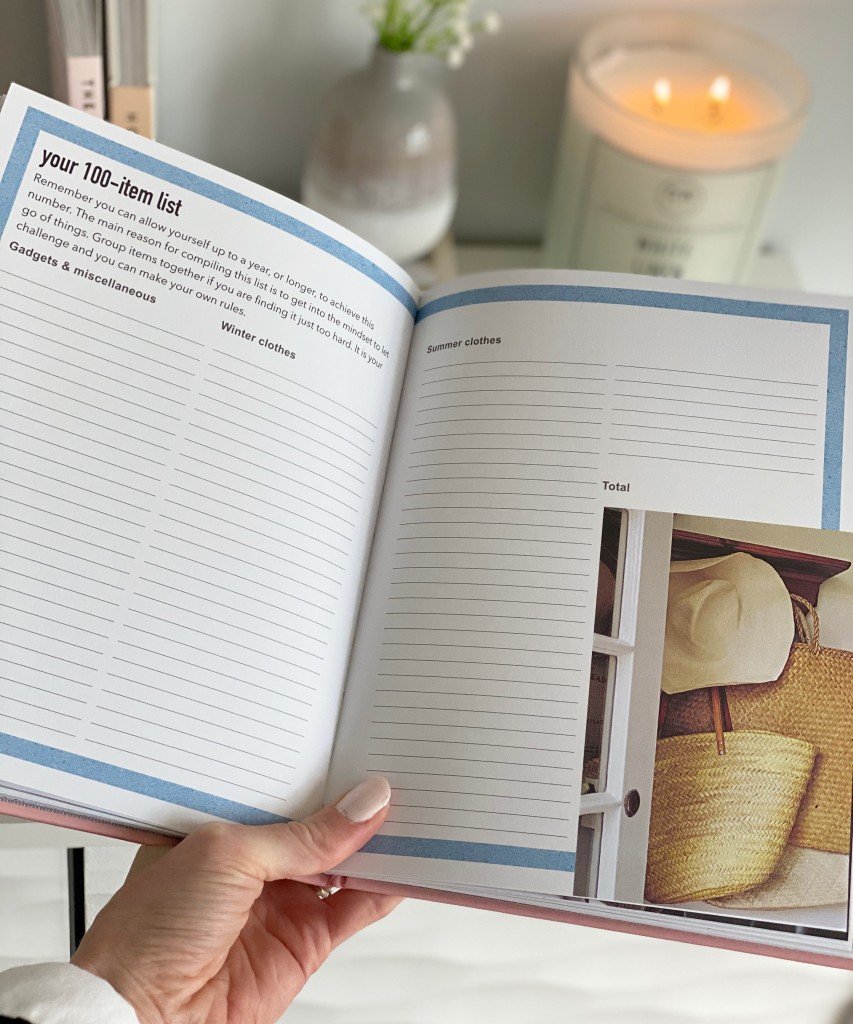 THE
your 100-item list
Remember you can allow yourself up to a year, or longer, to achieve this
number. The main reason for compiling this list is to get into the mindset to let
go of things. Group items together if you are finding it just too hard. It is your
challenge and you can make your own rules.
Gadgets & miscellaneous
Winter clothes
Summer clothes
Total
WHITE